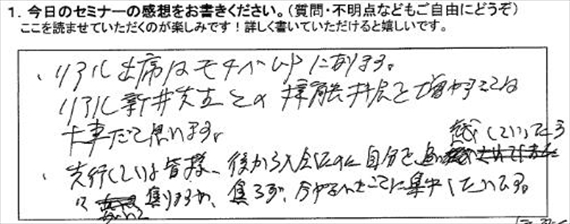 1. 今日のセミナーの感想をお書きください。(質問・不明点などもご自由にどうぞ)
ここを読ませていただくのが楽しみです!詳しく書いていただけると嬉しいです。
・リアル出席はモチベUPになります。
リアル新井先生との接触 を増やすことは
大事だと思います。
・先行している皆様、後から入会したのに自分を 越していった方
焦りますが、焦らず、今やるべきことに集中したいです。